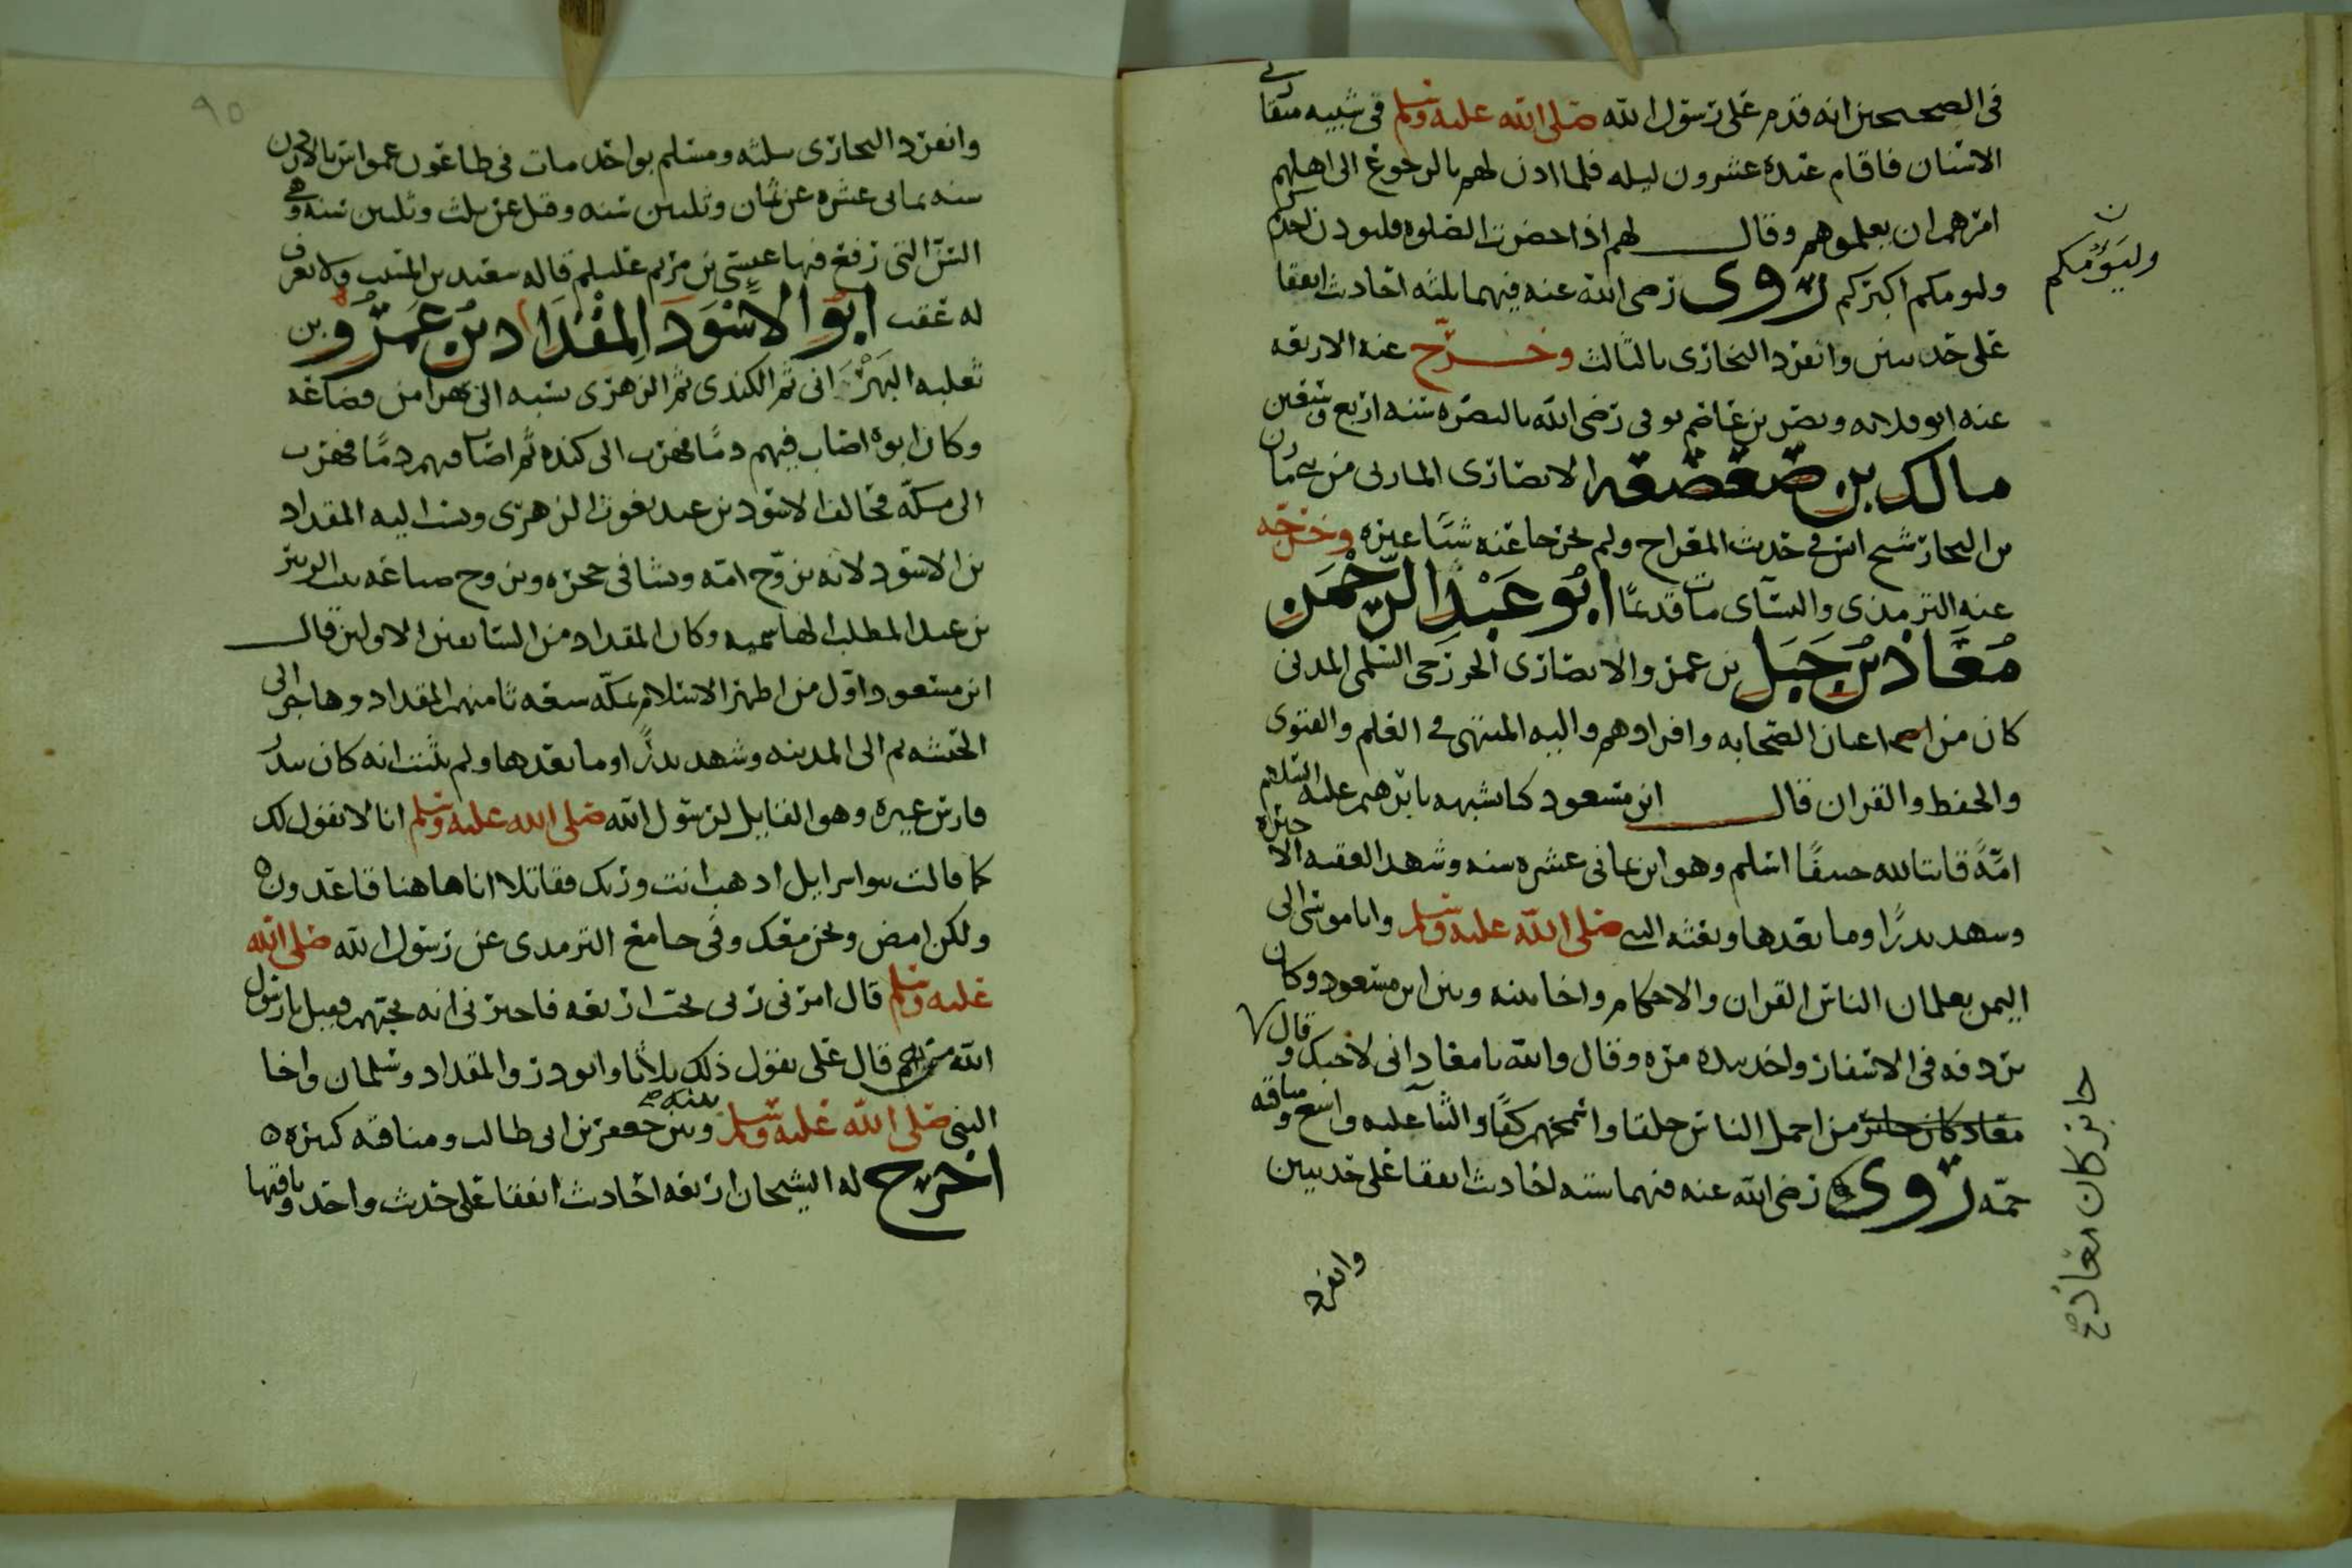 في الصحيحين انه قدم على رسول الله صلى الله عليه وسلم في شبيبه متقاربي
الاسنان فاقام عنده عشرون ليله فلما اذن لهم بالرجوع الى اهلهم
امرهم ان يعلموهم وقال لهم اذا حضرت الصلوه فليوذن احدكم
وليومكم اكبركم روى رضى الله عنه فيهما ثلثه احاديث اتفقا
وليؤمكم
على حديثين وانفرد البخارى بالثالث وخرج عنه الاربعه
عنه ابو قلابه ونصر بن عاصم توفى رضى الله بالبصره سنه اربع وتسعين
مالك بن صعصعه الانصارى المازنى من بنى مازن
بن النجار شيخ انس في حديث المعراج ولم يخرجا عنه شيئا غيره وخرج
عنه الترمذى والنسآى مات قديما ابو عبد الرحمن
معاذ بن جبل بن عمرو الانصارى الخزرجى السلمى المدنى
كان من اعيان الصحابه وافرادهم واليه المنتهى في العلم والفتوى
والحفظ والقران قال ابن مسعود كنا نشبهه بابرهيم عليه السلم
امة قانتا لله حنيفا اسلم وهو ابن ثمانى عشره سنه وشهد العقبه الاخيره
وشهد بدرا وما بعدها وبعثه النبي صلى الله عليه وسلم وابا موسى الى
اليمن يعلمان الناس القران والاحكام واخا بينه وبين ابن مسعود وكان
يردفه في الاسفار واخد بيده مره وقال والله يا معاذ انى لاحبك وقال
معاذ كان جابر من اجمل الناس خلقا واسمحهم كفا والثنآ عليه واسع ومناقبه
جابر كان معاذ صح
جمه روى رضى الله عنه فيهما سته احاديث اتفقا على حديثين
وانفرد
٩٥
وانفرد البخارى بثلثه ومسلم بواحد مات في طاعون عمواس بالاردن
سنه ثمانى عشره عن ثمان وثلثين سنه وقيل عن ثلث وثلثين سنه وهي
السن التى رفع فيها عيسى بن مريم عليلم قاله سعيد بن المسيب ولا يعرف
له عقب ابو الاسود المقداد بن عمرو بن
ثعلبه البهرانى ثم الكندى ثم الزهرى نسبه الى بهرا من قضاعه
وكان ابوه اصاب فيهم دما فهرب الى كنده ثم اصاب فيهم دما فهرب
الى مكة فحالف الاسود بن عبد يغوث الزهرى ونسب اليه المقداد
بن الاسود لانه تزوج امه ونشا في حجره وتزوج ضباعه بنت الزبير
بن عبد المطلب وكان المقداد من السابقين الاولين قال
ابن مسعود اول من اظهر الاسلام بمكه سبعه ثامنهم المقداد وهاجر الى
الحبشه ثم الى المدينه وشهد بدرا وما بعدها ولم يثبت انه كان ببدر
فارس غيره وهو القايل لرسول الله صلى الله عليه وسلم انا لا نقول لك
كما قالت بنو اسرايل اذهب انت وربك فقاتلا انا هاهنا قاعدون
ولكن امض ونحن معك وفي جامع الترمدى عن رسول الله صلى الله
عليه وسلم قال امرنى ربى بحب اربعه فاخبرنى انه يحبهم فقيل يا رسول
الله سمهم قال على يقول ذلك ثلاثا وابو ذر والمقداد وسلمان واخا
النبى صلى الله عليه وسلم بينه وبين جعفر بن ابى طالب ومناقبه كثيره
اخرج له الشيخان اربعه احاديث اتفقا على حديث واحد وباقيها